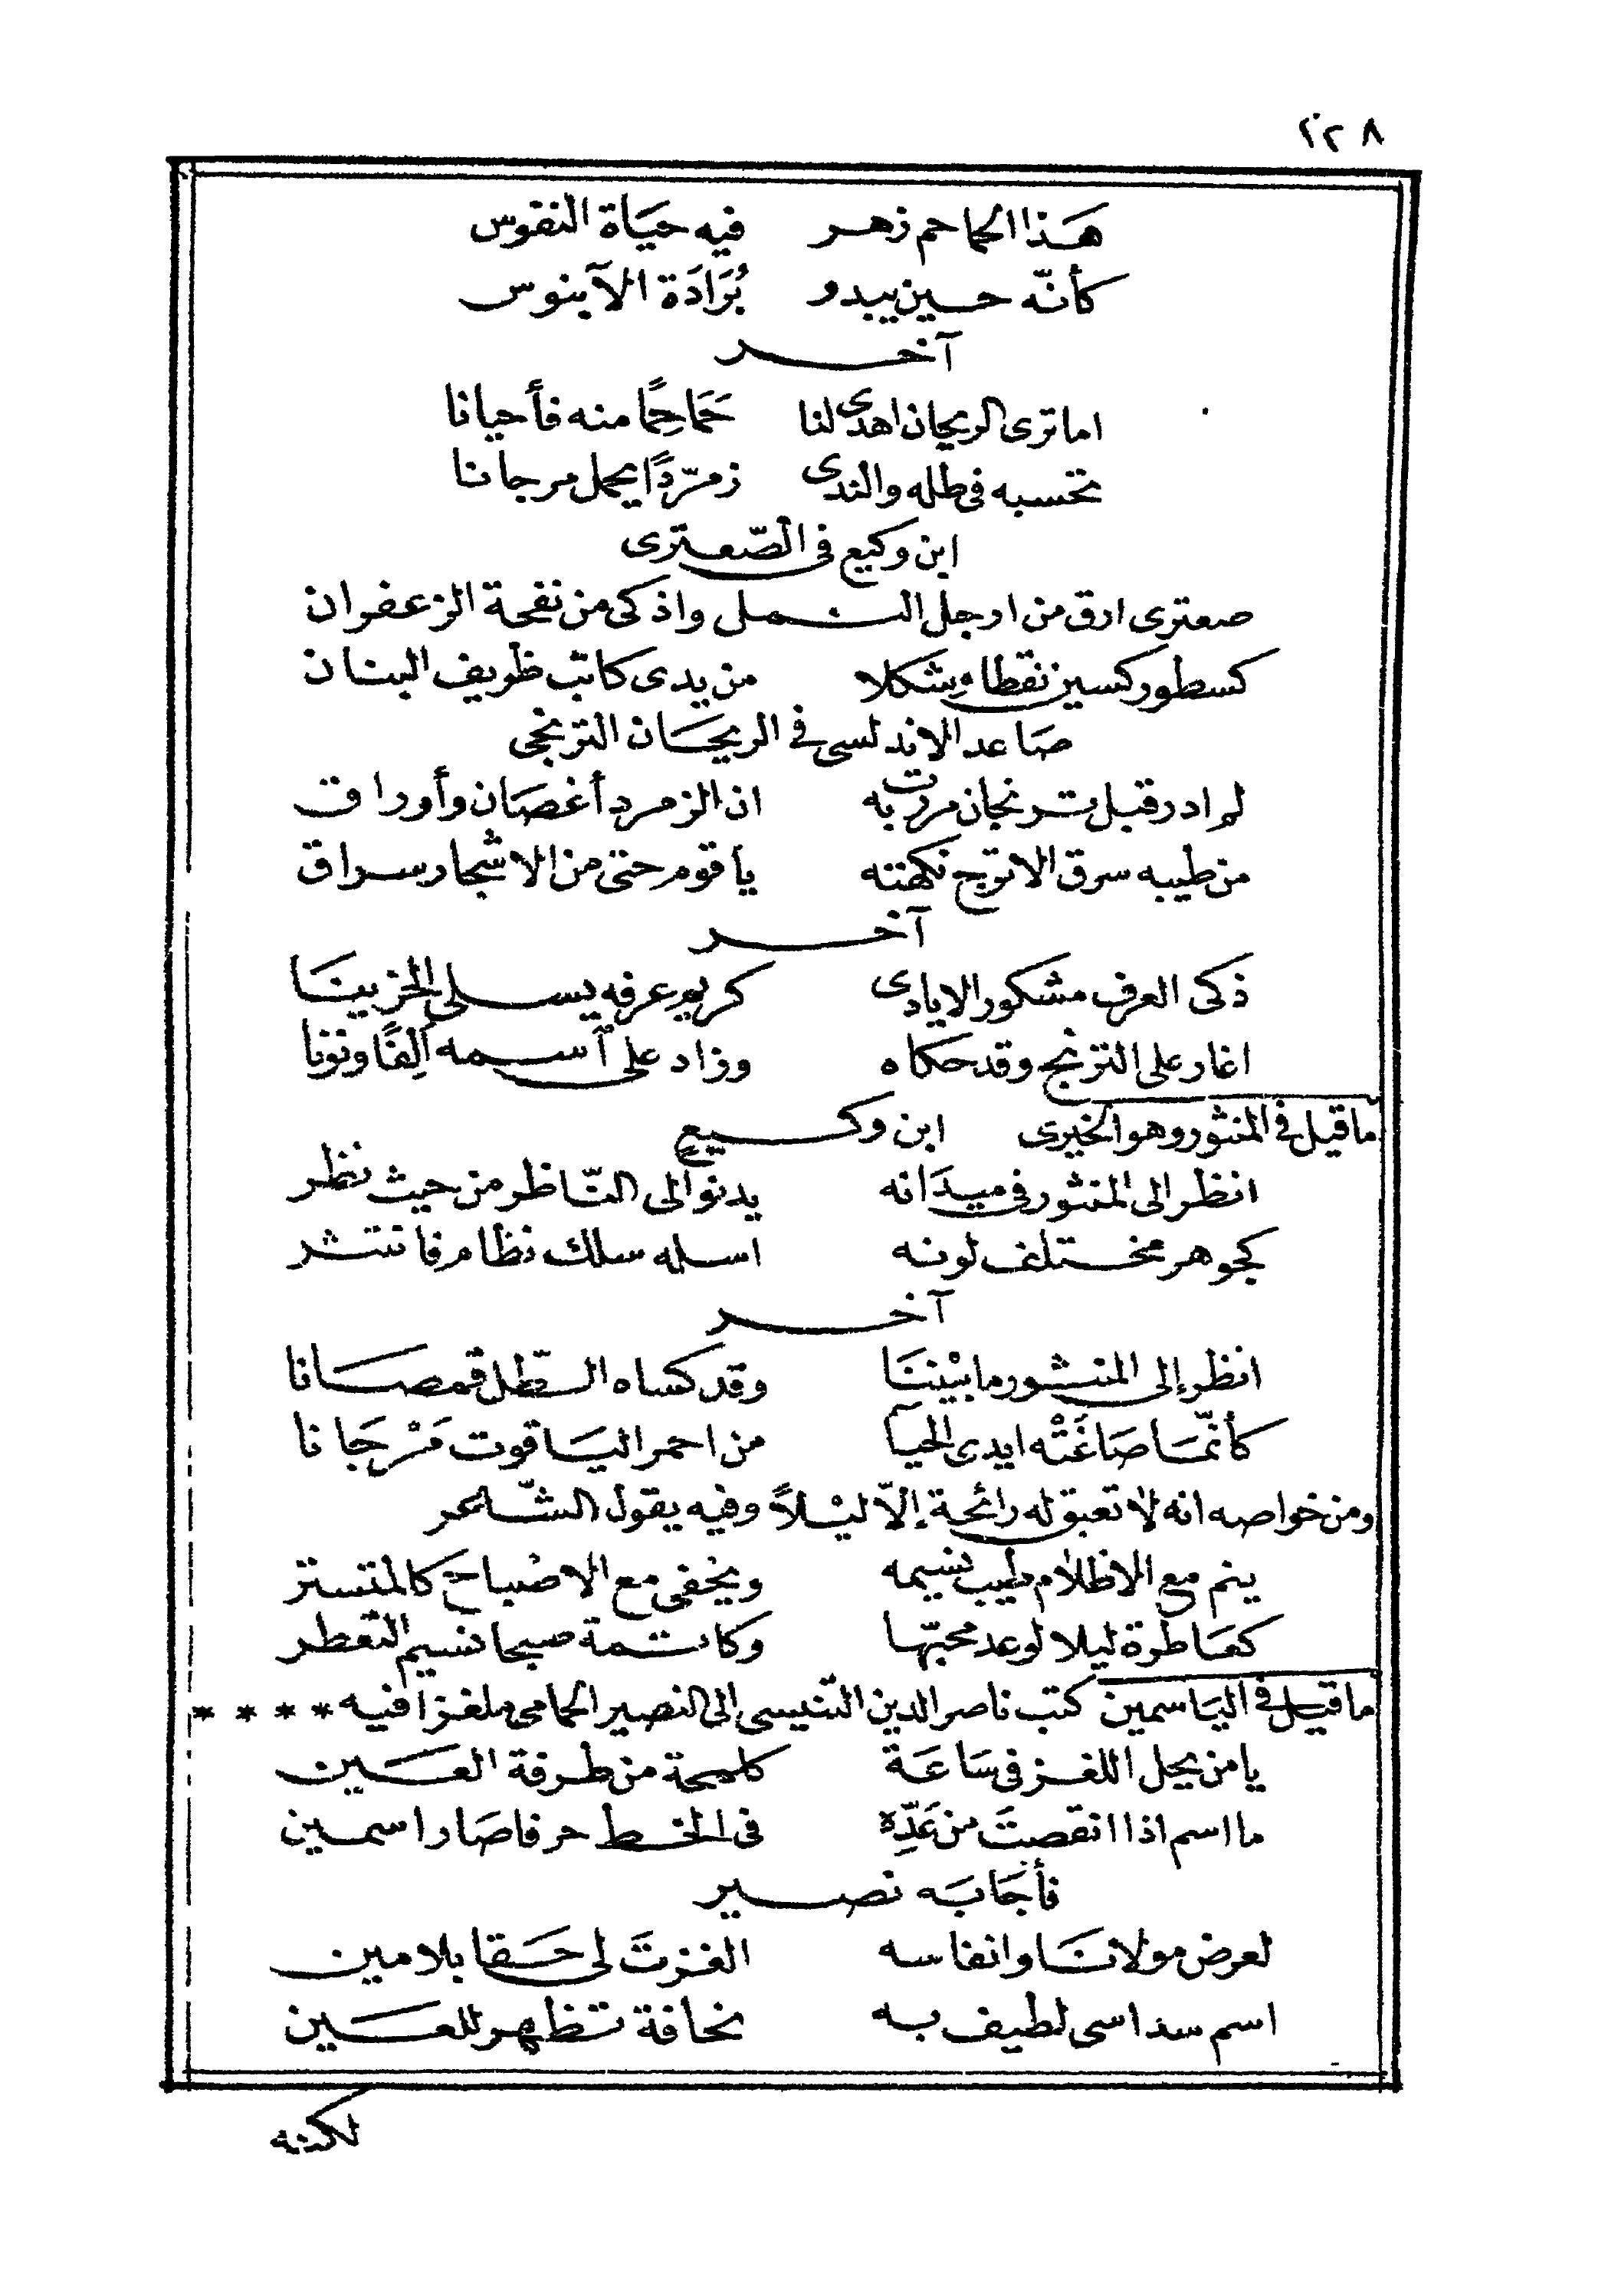 ٢٢٨
هذا الحماحم زهر فيه حياة النفوس
كأنّه حين يبدو بُرَادَة الآبنوس
آخر
اما ترى الريحان اهدى لنا حَمَاحِمًا منه فأحيانا
تحسبه فى طله والندى زمرّدًا يحمل مرجانا
ابن وكيع فى الصّعترى
صعترى ارق من ارجل النمل واذكى من نفحة الزعفران
كسطور كسين نقطا وشكلا من يدى كاتب ظريف البنان
صاعد الاندلسى فى الريحان الترنجى
لم ادر قبل ترنجان مررت به ان الزمرد أغصان وأوراق
من طيبه سرق الاترج نكهته يا قوم حتى من الاشجار سراق
آخر
ذكى العرف مشكور الايادى كريم عرفه يسلى الحزينا
اغار على الترنج وقد حكاه وزاد على اسمه أَلِفًا ونونا
ما قيل فى المنثور وهو الخيرى ابن وكيع
انظر الى المنثور فى ميدانه يدنو الى النّاظر من حيث نظر
كجوهر مختلف لونه اسله سلك نظام فانتثر
آخر
انظر إلى المنثور ما بيْننَا وقد كساه الطّل قمصانا
كأنّمَا صَاغَتْه ايدى الحيا من احمر اليَاقوت مَرْجَانا
ومن خواصه انه لا تعبق له رائحة إلّا ليْلاً وفيه يقول الشّاعر
ينم مع الاظلام طيب نسيمه ويخفى مع الاصْباح كالمتستر
كعَاطرة ليلا لوعد محبّها وكاتمة صبحا نسيم التعطر
ما قيل فى اليَاسمين كتب ناصر الدين التنيسى الى النصير الحمامى ملغزا فيه * * * *
يا من يحل اللغز فى سَاعَة كلمحة من طرفة العَين
ما اسم اذا انقصتَ من عَدِّه فى الخط حرفا صَار اسمين
فأجَابَه نصير
لعرض مولانَا وانفاسه الغزتَ لى حَقا بلا مين
اسم سداسى لطيف به نحافة تظهر للعَين
لكنه